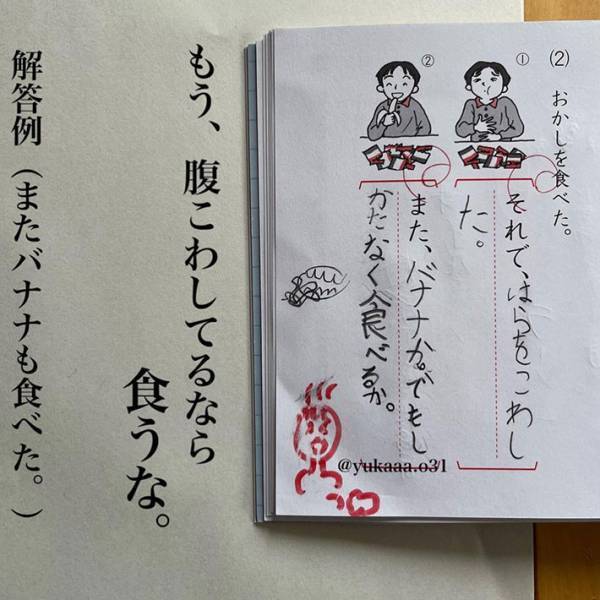 (2) おかしを食べた。
①
それで、はらをこわし
た。
②
また、バナナか。でもし
かたなく食べるか。
@yukaaa.o31
もう、腹こわしてるなら
食うな。
解答例（またバナナも食べた。）